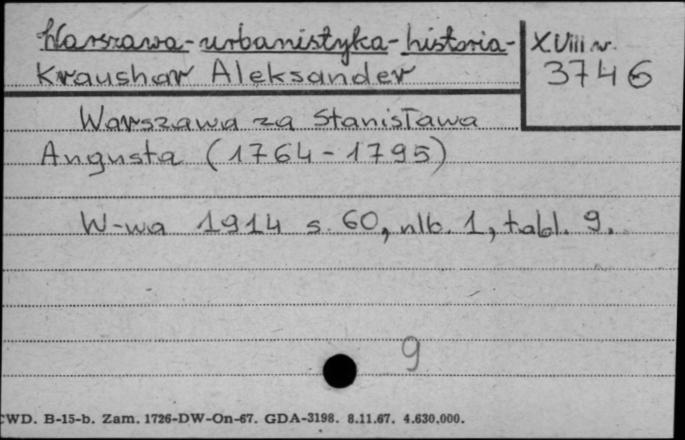 Warszawa-urbanistyka-historia- XVIII w.
Kraushar Aleksander 3746
Warszawa za Stanisława
Augusta (1764-1795)
W-wa 1914 s. 60, nlb. 1, tabl. 9.
9
CWD. B-15-b. Zam. 1726-DW-On-67. GDA-3198. 8.11.67. 4.630.000.